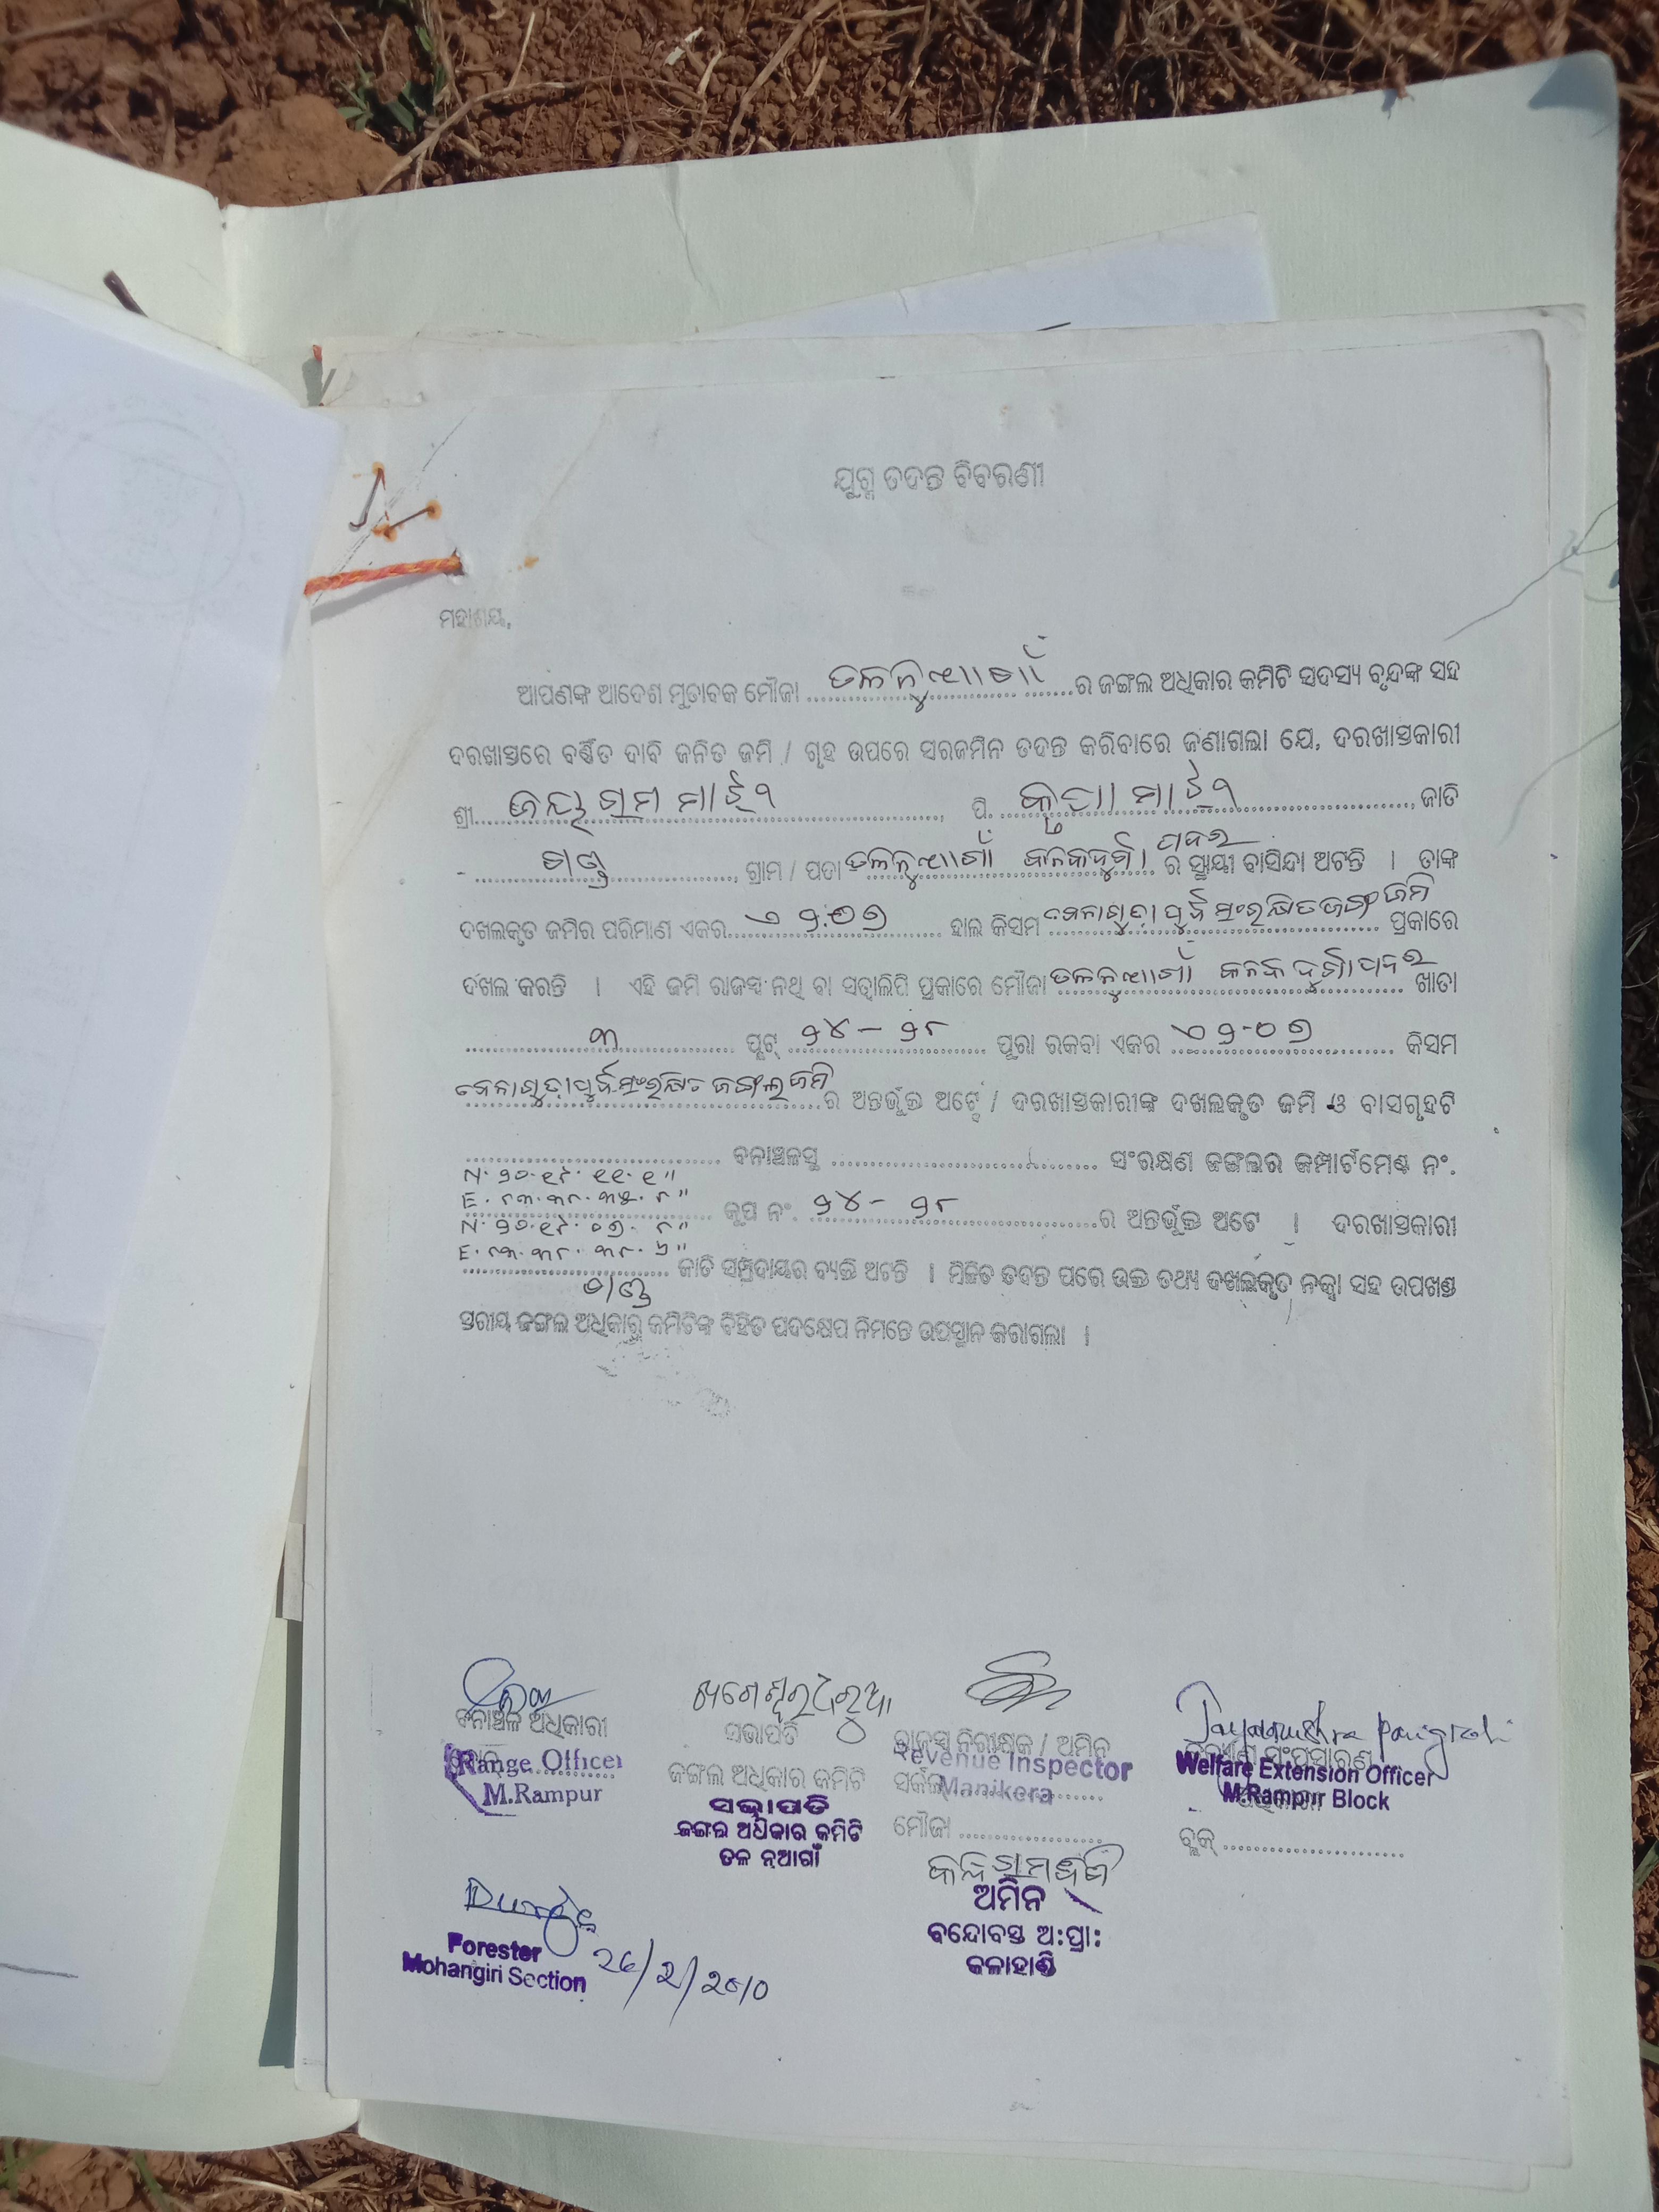 ଯୁଗ୍ମ ତଦନ୍ତ ବିବରଣୀ
ମହାଶୟ,
ଆପଣଙ୍କ ଆଦେଶ ମୁତାବକ ମୌଜା ତଳନୁଆଗାଁ ର ଜଙ୍ଗଲ ଅଧିକାର କମିଟି ସଦସ୍ୟ ବୃନ୍ଦଙ୍କ ସହ
ଦରଖାସ୍ତରେ ବର୍ଣ୍ଣିତ ଦାବି ଜନିତ ଜମି / ଗୃହ ଉପରେ ସରଜମିନ ତଦନ୍ତ କରିବାରେ ଜଣାଗଲା ଯେ, ଦରଖାସ୍ତକାରୀ
ଶ୍ରୀ ଜୟରାମ ମାଝୀ, ପି. ମାଝୀ, ଜାତି
ଗ୍ରାମ / ପଡା ତଳନୁଆଗାଁ ର ସ୍ଥାୟୀ ବାସିନ୍ଦା ଅଟନ୍ତି । ତାଙ୍କ
ଦଖଲକୃତ ଜମିର ପରିମାଣ ଏକର ହାଲ କିସମ ଜମି ପ୍ରକାରେ
ଦଖଲ କରନ୍ତି । ଏହି ଜମି ରାଜସ୍ୱ ନଥି ବା ସତ୍ୱାଲିପି ପ୍ରକାରେ ମୌଜା ତଳନୁଆଗାଁ ଖାତା
୩ ପ୍ଲଟ୍ ୨୪ – ୨୮ ପୂରା ରକବା ଏକର କିସମ
ଜଙ୍ଗଲ ଜମି ର ଅନ୍ତର୍ଭୁକ୍ତ ଅଟେ / ଦରଖାସ୍ତକାରୀଙ୍କ ଦଖଲକୃତ ଜମି ଓ ବାସଗୃହଟି
ବନାଞ୍ଚଳସ୍ଥ ସଂରକ୍ଷଣ ଜଙ୍ଗଲର କମ୍ପାର୍ଟମେଣ୍ଟ ନଂ.
N. ୨୦. ୧୯. ୧୧. ୧"
E. ୮୩. ୩୮. ୩୫. ୮"
କୂପ ନଂ. ୨୪ – ୨୮ ର ଅନ୍ତର୍ଭୁକ୍ତ ଅଟେ । ଦରଖାସ୍ତକାରୀ
N. ୨୦. ୧୯. ୦୭. ୮"
E. ୮୩. ୩୮. ୩୮. ୬"
ଜାତି ସମ୍ପ୍ରଦାୟର ବ୍ୟକ୍ତି ଅଟନ୍ତି । ମିଳିତ ତଦନ୍ତ ପରେ ଉକ୍ତ ତଥ୍ୟ ଦଖଲକୃତ ନକ୍ସା ସହ ଉପଖଣ୍ଡ
ସ୍ତରୀୟ ଜଙ୍ଗଲ ଅଧିକାର କମିଟିଙ୍କ ବିହିତ ପଦକ୍ଷେପ ନିମନ୍ତେ ଉପସ୍ଥାନ କରାଗଲା ।
ବନାଞ୍ଚଳ ଅଧିକାରୀ
Range Officer
M.Rampur
ସଭାପତି
ଜଙ୍ଗଲ ଅଧିକାର କମିଟି
ସଭାପତି
ଜଙ୍ଗଲ ଅଧିକାର କମିଟି
ତଳ ନୂଆଗାଁ
ରାଜସ୍ୱ ନିରୀକ୍ଷକ / ଅମିନ
Revenue Inspector
ସର୍କଲ Manikera
ମୌଜା
ଅମିନ
ବନ୍ଦୋବସ୍ତ ଅ:ପ୍ରା:
କଳାହାଣ୍ଡି
Welfare Extension Officer
M.Rampur Block
ବ୍ଲକ୍
Forester
Mohangiri Section
26/2/2010